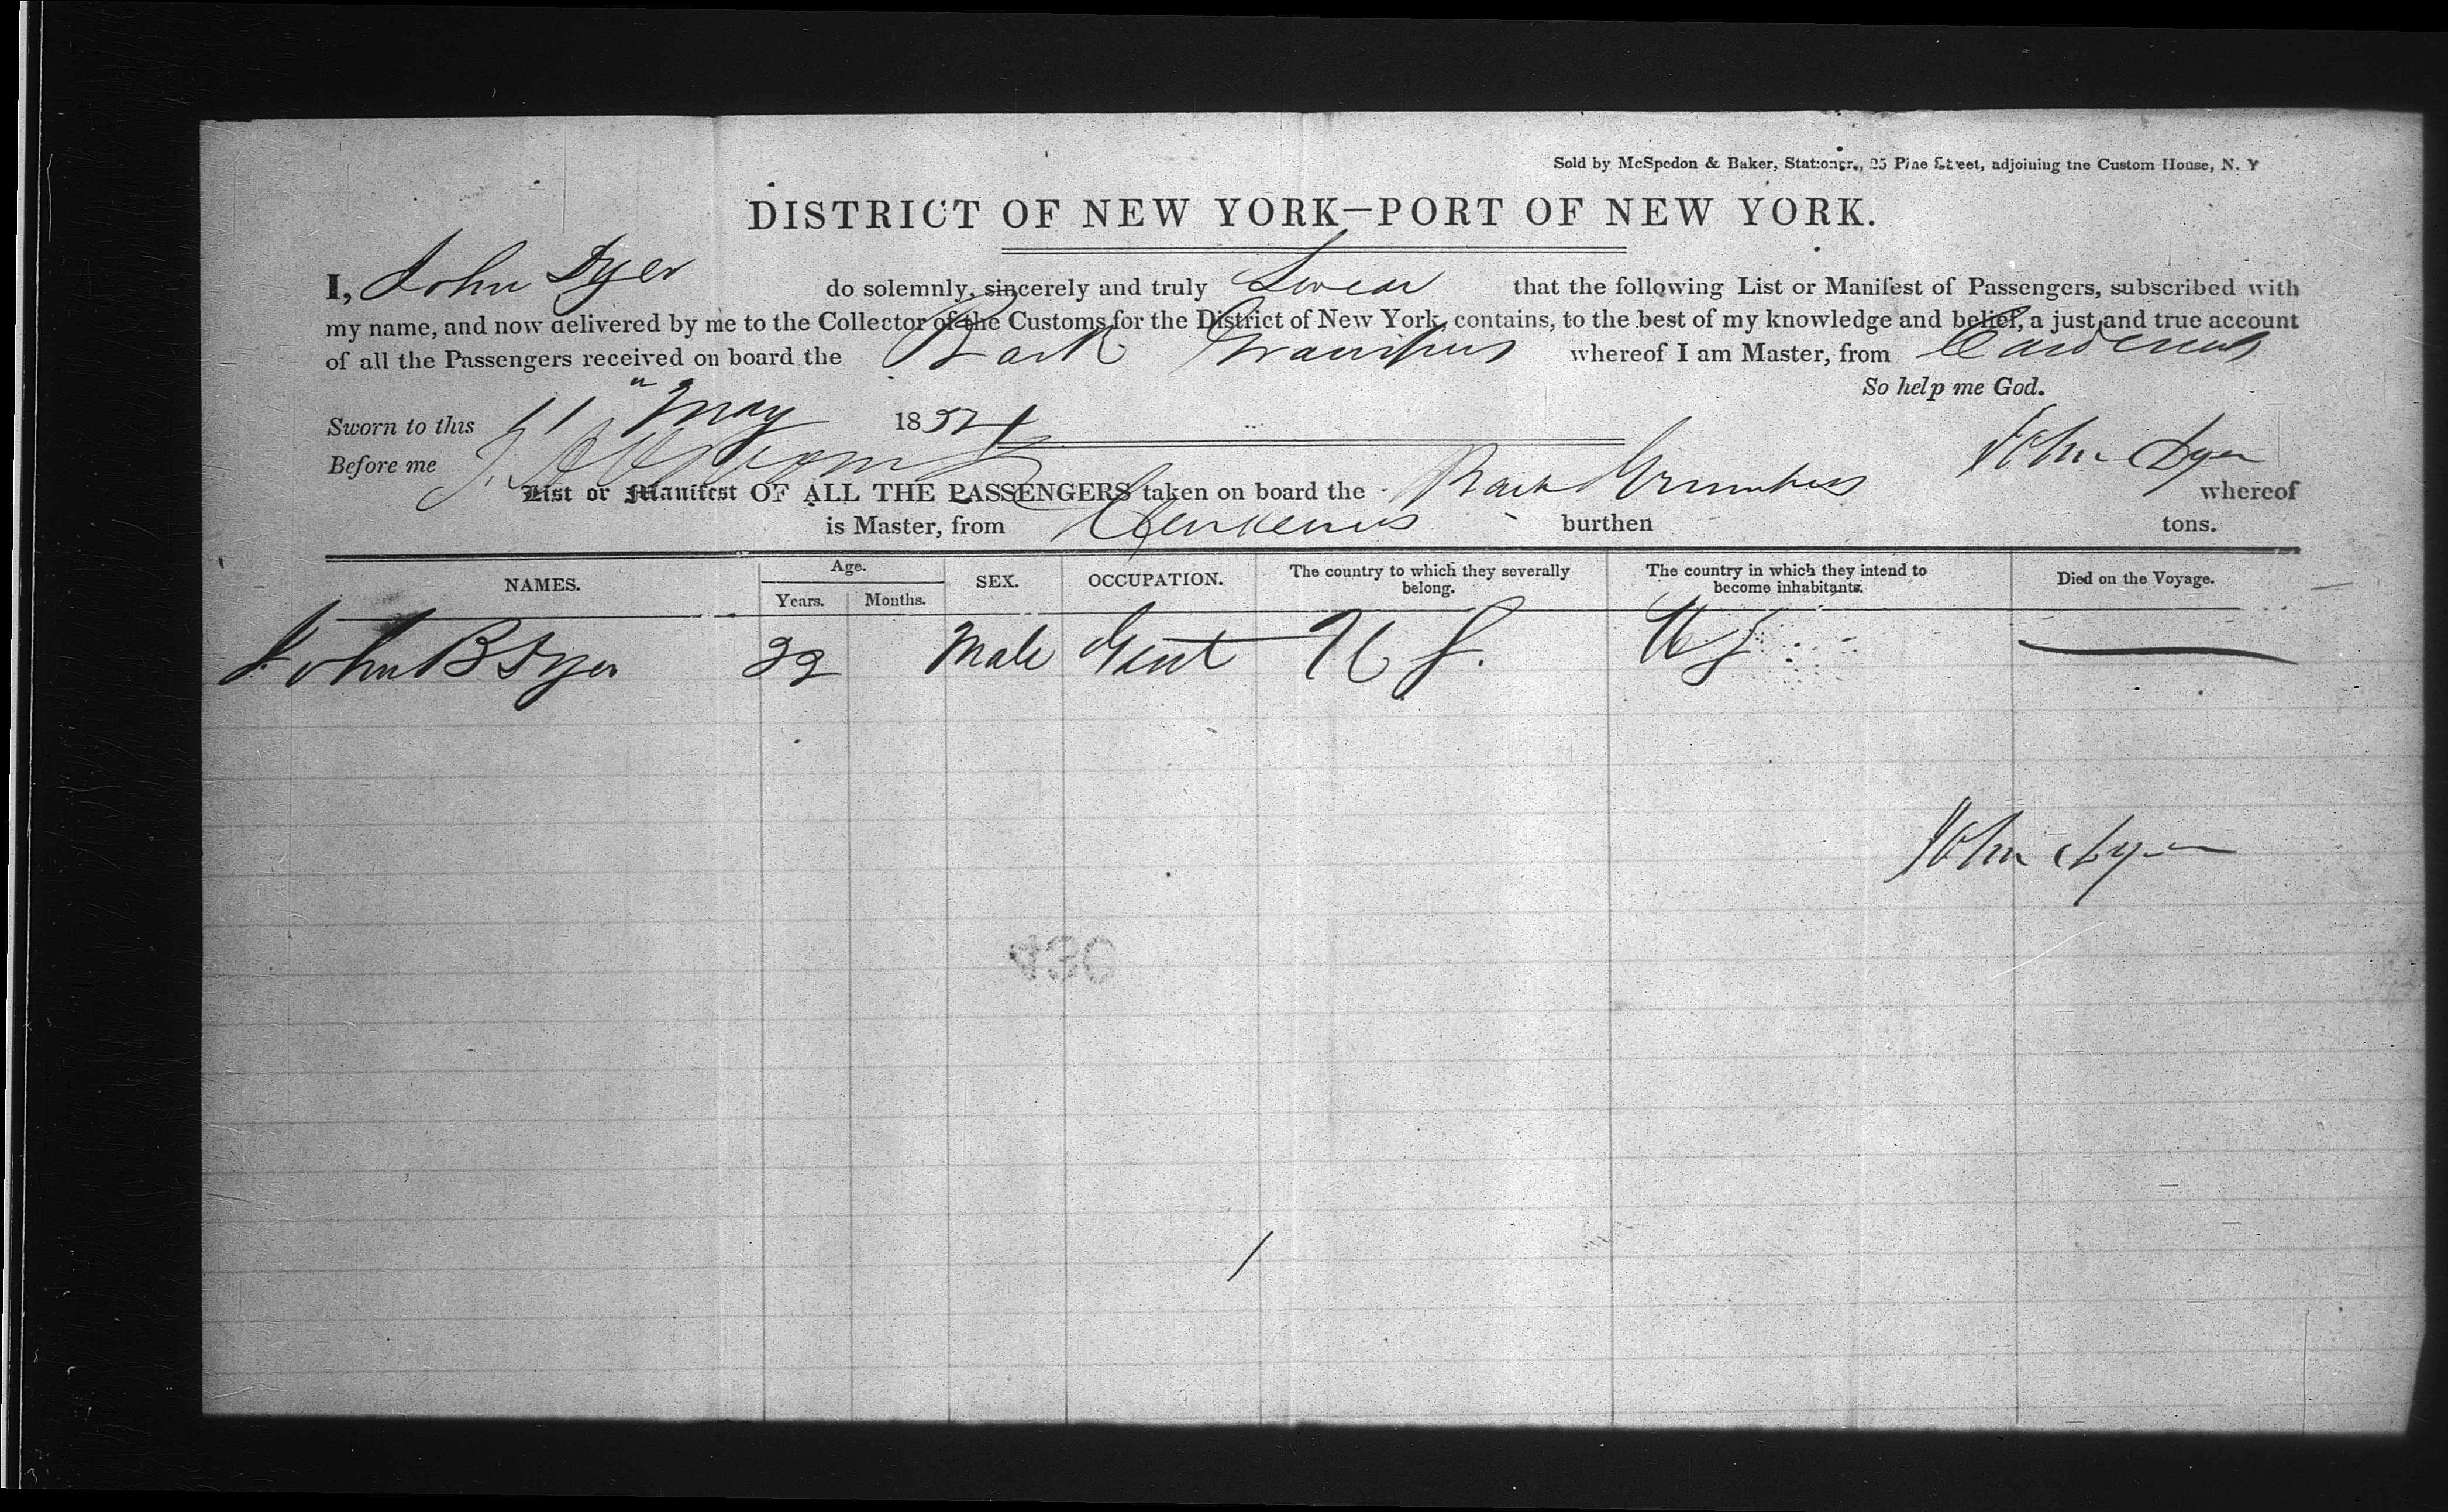 Sold by McSpedon & Baker, Stationers, 25 Pine Street, adjoining the Custom House, N. Y
DISTRICT OF NEW YORK—PORT OF NEW YORK.
I, John Dyer do solemnly, sincerely and truly Swear that the following List or Manifest of Passengers, subscribed with
my name, and now delivered by me to the Collector of the Customs for the District of New York, contains, to the best of my knowledge and belief, a just and true account
of all the Passengers received on board the Bark Grampus whereof I am Master, from Cardenas
So help me God.
Sworn to this 11" May 1854
John Dyer
Before me
List or Manifest OF ALL THE PASSENGERS taken on board the Bark Grampus whereof
is Master, from Cardenas burthen tons.
NAMES. Age. Years. Months. SEX. OCCUPATION. The country to which they severally belong. The country in which they intend to become inhabitants. Died on the Voyage.
John B Dyer 22 Male Gent U S. U S
John Dyer
430
1